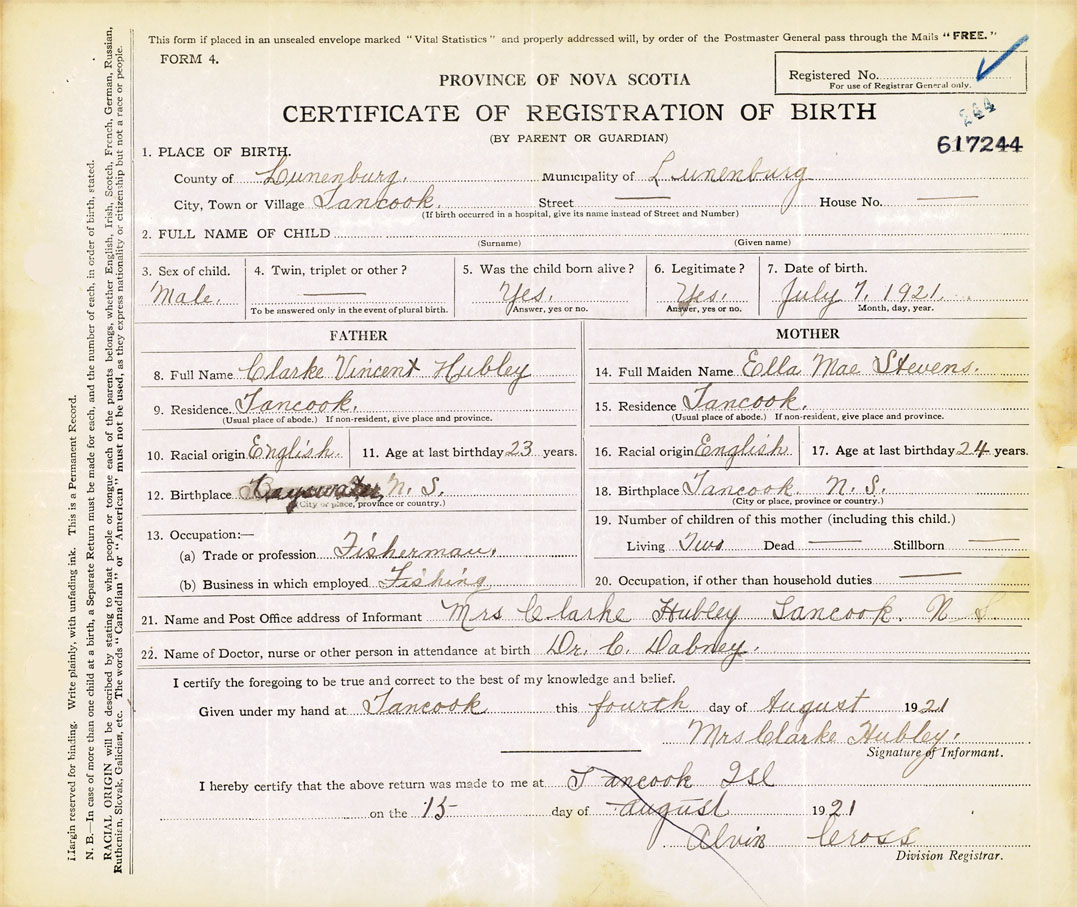 This form if placed in an unsealed envelope marked "Vital Statistics" and properly addressed will, by order of the Postmaster General pass through the Mails "FREE."
FORM 4.
PROVINCE OF NOVA SCOTIA
Registered No.
For use of Registrar General only.
CERTIFICATE OF REGISTRATION OF BIRTH
244
(BY PARENT OR GUARDIAN)
617244
1. PLACE OF BIRTH.
County of Lunenburg. Municipality of Lunenburg
City, Town or Village Tancook. Street — House No. —
(If birth occurred in a hospital, give its name instead of Street and Number)
2. FULL NAME OF CHILD
(Surname) (Given name)
3. Sex of child. 4. Twin, triplet or other? 5. Was the child born alive? 6. Legitimate? 7. Date of birth.
Male. — Yes. Yes. July 7, 1921.
To be answered only in the event of plural birth. Answer, yes or no. Answer, yes or no. Month, day, year.
FATHER MOTHER
8. Full Name Clarke Vincent Hubley 14. Full Maiden Name Ella Mae Stevens.
9. Residence Tancook. 15. Residence Tancook.
(Usual place of abode.) If non-resident, give place and province. (Usual place of abode.) If non-resident, give place and province.
10. Racial origin English. 11. Age at last birthday 23 years. 16. Racial origin English 17. Age at last birthday 24 years.
12. Birthplace Bayswater, N. S. 18. Birthplace Tancook N. S.
(City or place, province or country.) (City or place, province or country.)
13. Occupation:— 19. Number of children of this mother (including this child.)
(a) Trade or profession Fisherman. Living Two Dead — Stillborn —
(b) Business in which employed Fishing 20. Occupation, if other than household duties —
21. Name and Post Office address of Informant Mrs Clarke Hubley Tancook. N. S.
22. Name of Doctor, nurse or other person in attendance at birth Dr. C. Dabney.
I certify the foregoing to be true and correct to the best of my knowledge and belief.
Given under my hand at Tancook this fourth day of August 1921
Mrs Clarke Hubley.
Signature of Informant.
I hereby certify that the above return was made to me at Tancook Isl
on the 15 day of august 1921
Alvin Cross
Division Registrar.
Margin reserved for binding. Write plainly, with unfading ink. This is a Permanent Record.
N. B.—In case of more than one child at a birth, a Separate Return must be made for each, and the number of each, in order of birth, stated.
RACIAL ORIGIN will be described by stating to what people or tongue each of the parents belongs, whether English, Irish, Scotch, French, German, Russian,
Ruthenian, Slovak, Galician, etc. The words "Canadian" or "American" must not be used, as they express nationality or citizenship but not a race or people.